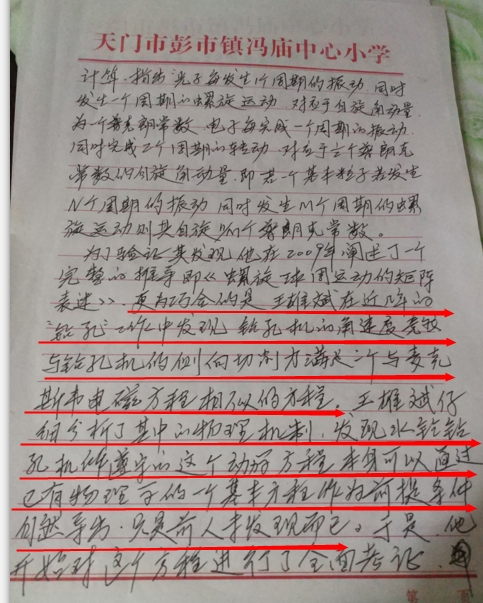 天门市彭市镇冯庙中心小学
计算,指出光子每发生1个周期的振动,同时
发生一个周期的螺旋运动,对应于自旋角动量
为一个普朗克常数,电子每完成一个周期的振动,
同时完成2个周期的转动,对应于个普朗克
常数的自旋角动量,即若一个基本粒子若发生
N个周期的振动,同时发生M个周期的螺
旋运动则其自旋个普朗克常数。
为了验证其发现,他在2009年阐述了一个
完整的推导即《螺旋球周运动的矩阵
表述》。更为巧合的是王雄斌在近的
"钻孔"工作中发现,钻孔机的角速度竟敢
与钻孔机的侧向切割力满足一个与麦克
斯韦电磁方程相似的方程。王雄斌仔
细分析了其中的物理机制,发现水钻钻
孔机所遵守的这个动力方程本身可以通过
已有物理学的一个基本方程作为前提条件
自然导出,只是前人未发现而已。于是,他
开始对这个方程进行了全面考证,
第